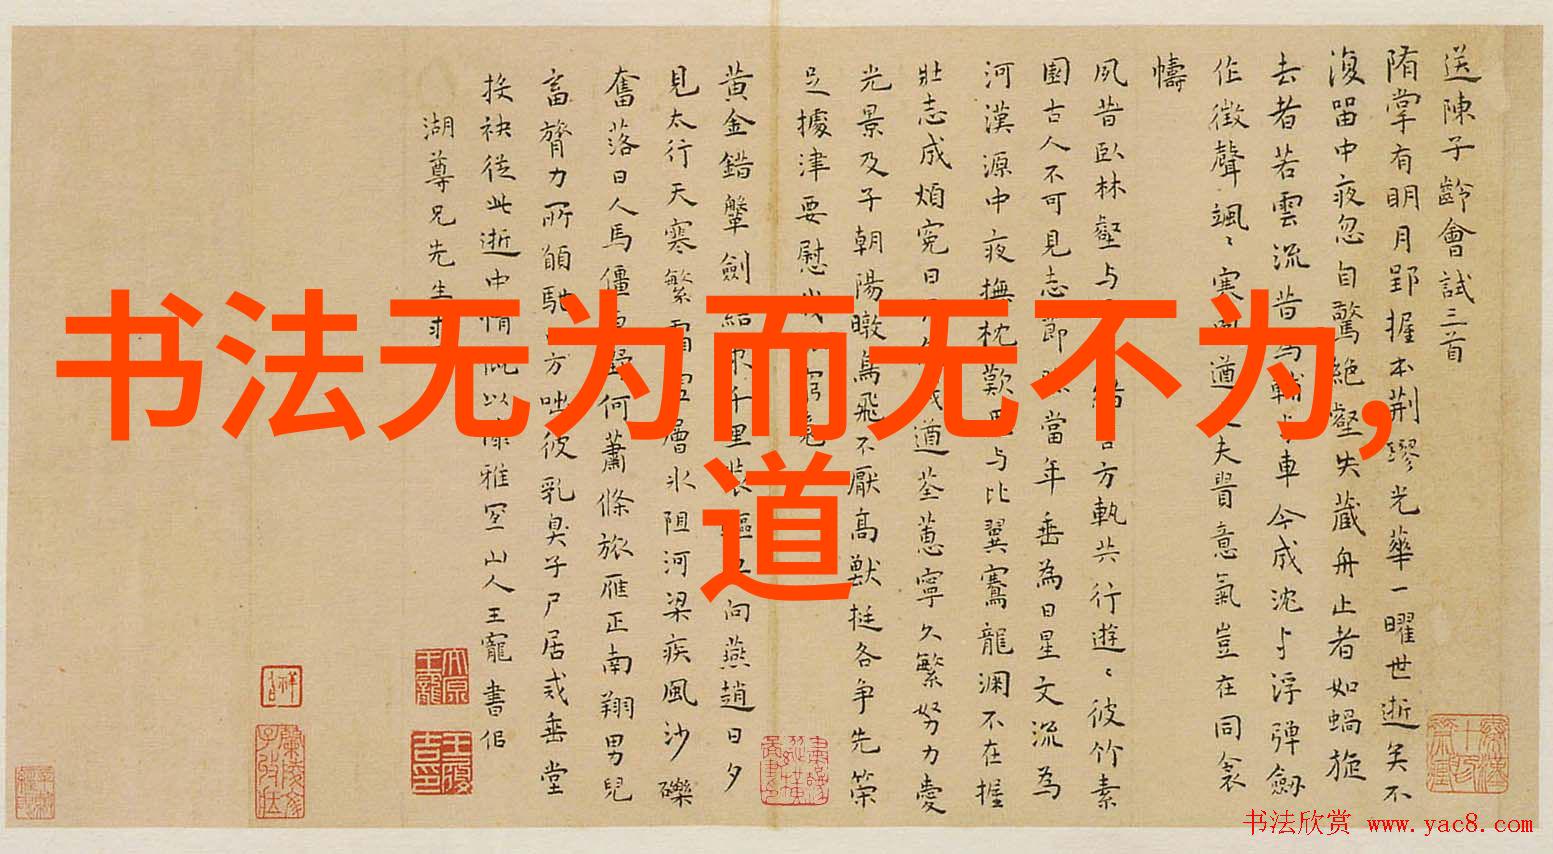 书法无为而无不为,
道
送陳子齡會試三首
隋掌有明月郢握本荆璆光華一曜世逝矣不
復留中夜忽自驚絶壑失藏舟止者如蝸旋
去者若雲流昔車今成沈与浮弹劔
作徵聲颯〻寒夫意氣豈在同衾
幬
夙昔卧林壑与方軌共行遊〻彼竹素
園古人不可見志節當年垂為日星文流為
河漢源中夜撫枕歎与比翼騫龍渊不在握
壯志成煩寃日遒荃蕙寧久繁努力愛
光景及子朝陽暾鳥飛不厭高獸挺各争先策
足據津要慰
黄金錯鞶劍結千里裝向燕趙日夕
見太行天寒繁霜雪層氷阻河梁疾風沙礫
奮落日人馬僵野何蕭條旅雁正南翔男兒
畜膂力所願馳方咄彼乳臭子尸居或垂堂
接袂從此逝中情以雅宜山人王寵書侣
湖尊兄先生
书法欣赏 www.yac8.com